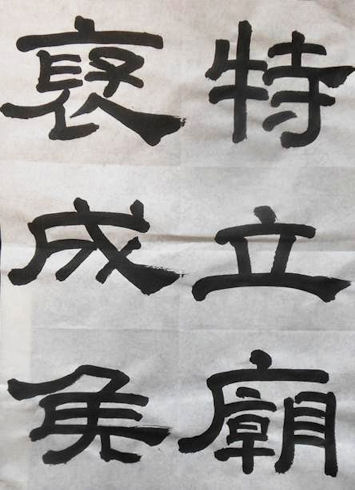 特立廟
褒成矦